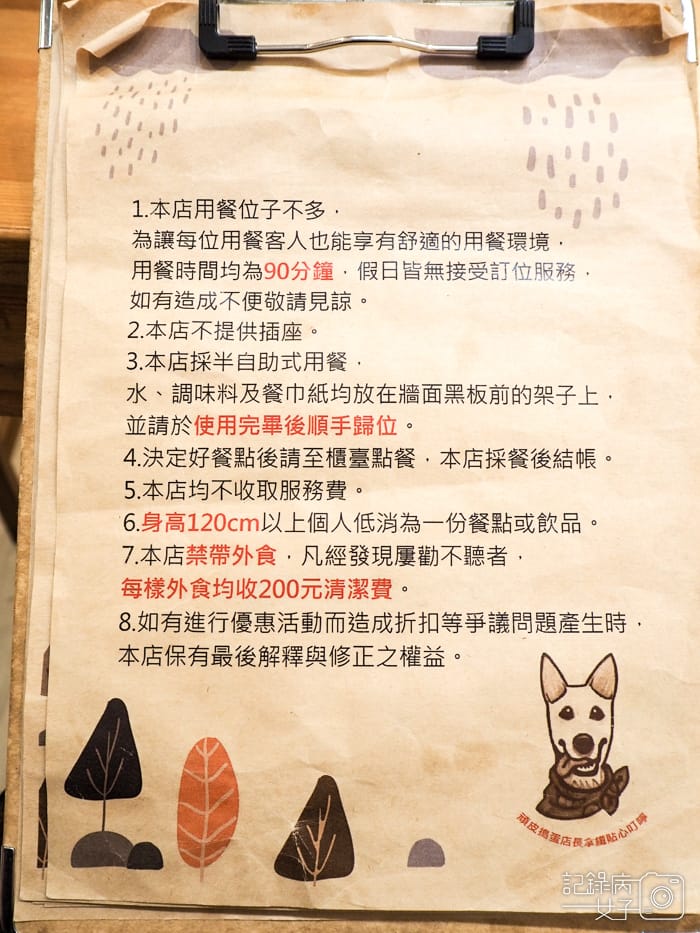 1.本店用餐位子不多，
為讓每位用餐客人也能享有舒適的用餐環境，
用餐時間均為90分鐘，假日皆無接受訂位服務，
如有造成不便敬請見諒。
2.本店不提供插座。
3.本店採半自助式用餐，
水、調味料及餐巾紙均放在牆面黑板前的架子上，
並請於使用完畢後順手歸位。
4.決定好餐點後請至櫃臺點餐，本店採餐後結帳。
5.本店均不收取服務費。
6.身高120cm以上個人低消為一份餐點或飲品。
7.本店禁帶外食，凡經發現屢勸不聽者，
每樣外食均收200元清潔費。
8.如有進行優惠活動而造成折扣等爭議問題產生時，
本店保有最後解釋與修正之權益。
頑皮搗蛋店長拿鐵貼心叮嚀
記錄病
女子